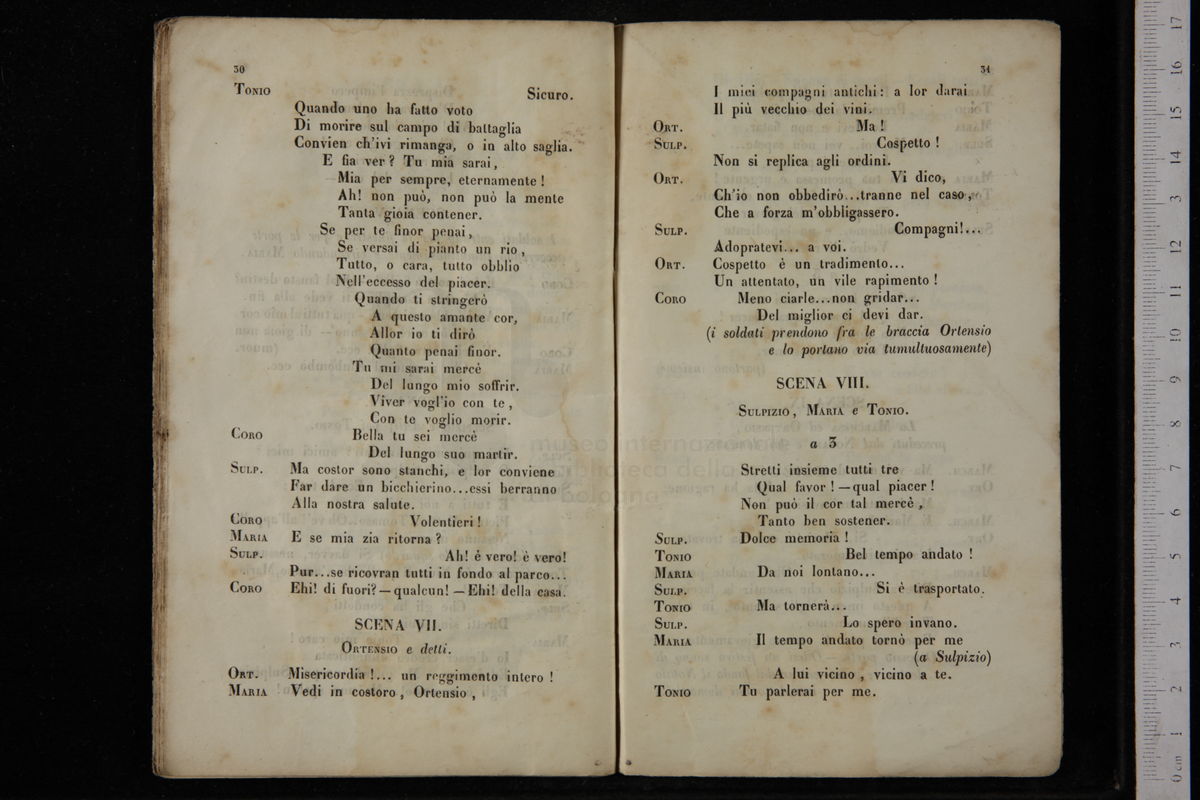 30
TONIO Sicuro.
Quando uno ha fatto voto
Di morire sul campo di battaglia
Convien ch'ivi rimanga, o in alto saglia.
E fia ver? Tu mia sarai,
Mia per sempre, eternamente!
Ah! non può, non può la mente
Tanta gioia contener.
Se per te finor penai,
Se versai di pianto un rio,
Tutto, o cara, tutto obblio
Nell'eccesso del piacer.
Quando ti stringerò
A questo amante cor,
Allor io ti dirò
Quanto penai finor.
Tu mi sarai mercè
Del lungo mio soffrir.
Viver vogl'io con te,
Con te voglio morir.
CORO Bella tu sei mercè
Del lungo suo martir.
SULP. Ma costor sono stanchi, e lor conviene
Far dare un bicchierino...essi berranno
Alla nostra salute.
CORO Volentieri!
MARIA E se mia zia ritorna?
SULP. Ah! è vero! è vero!
Pur...se ricovran tutti in fondo al parco...
CORO Ehi! di fuori?—qualcun!—Ehi! della casa.
SCENA VII.
ORTENSIO e detti.
ORT. Misericordia!... un reggimento intero!
MARIA Vedi in costoro, Ortensio,
31
I miei compagni antichi: a lor darai
Il più vecchio dei vini.
ORT. Ma!
SULP. Cospetto!
Non si replica agli ordini.
ORT. Vi dico,
Ch'io non obbedirò...tranne nel caso,
Che a forza m'obbligassero.
SULP. Compagni!...
Adopratevi... a voi.
ORT. Cospetto è un tradimento...
Un attentato, un vile rapimento!
CORO Meno ciarle...non gridar...
Del miglior ci devi dar.
(i soldati prendono fra le braccia Ortensio
e lo portano via tumultuosamente)
SCENA VIII.
SULPIZIO, MARIA e TONIO.
a 3
Stretti insieme tutti tre
Qual favor!—qual piacer!
Non può il cor tal mercè,
Tanto ben sostener.
SULP. Dolce memoria!
TONIO Bel tempo andato!
MARIA Da noi lontano...
SULP. Si è trasportato.
TONIO Ma tornerà...
SULP. Lo spero invano.
MARIA Il tempo andato tornò per me
(a Sulpizio)
A lui vicino, vicino a te.
TONIO Tu parlerai per me.
museo internazionale
biblioteca della
di bologna
0 cm 1 2 3 4 5 6 7 8 9 10 11 12 13 14 15 16 17